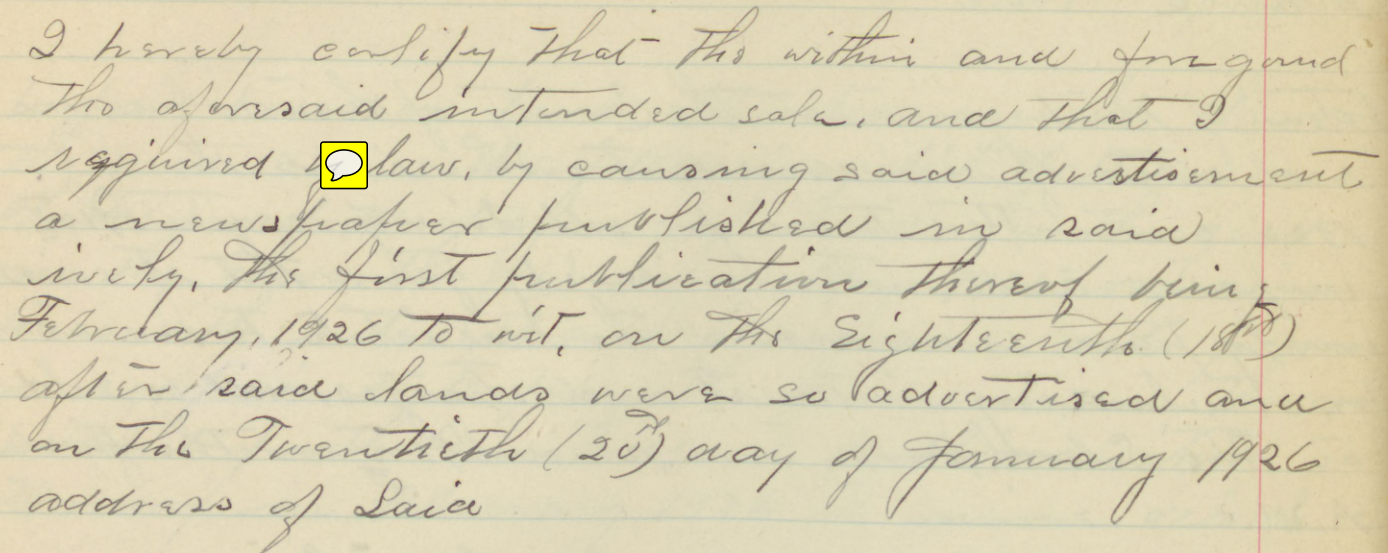 I hereby certify that the within and foregoind
the aforesaid intended sale, and that I
required law, by causing said advertisement
a newspaper published in said
ively, the first publication thereof being
February, 1926 to wit, on the Eighteenth (18th)
after said lands were so advertised and
on the Twentieth (20th) day of January 1926
address of said